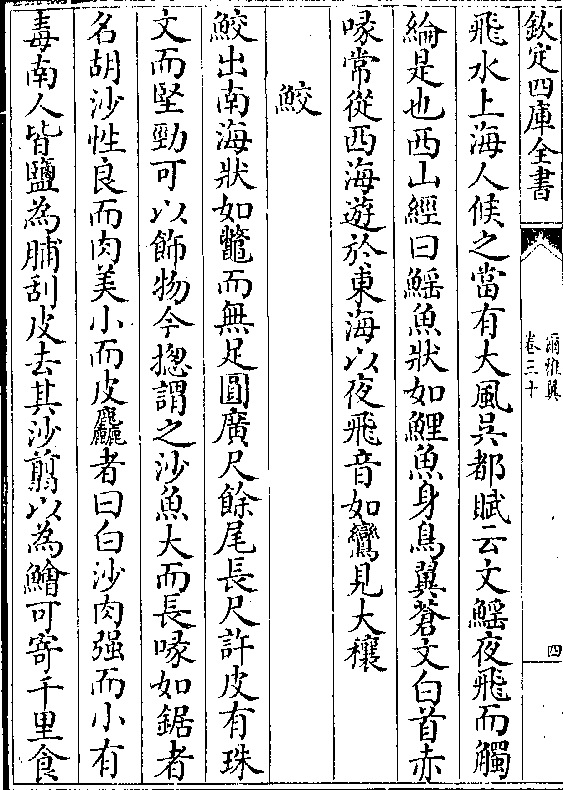 欽定四庫全書
爾雅翼
卷三十
四
飛水上海人候之當有大風吳都賦云文鰩夜飛而觸
綸是也西山經曰鰩魚狀如鯉魚身鳥翼蒼文白首赤
喙常從西海遊於東海以夜飛音如鸞見大穰
鮫
鮫出南海狀如鼈而無足圓廣尺餘尾長尺許皮有珠
文而堅勁可以飾物今揔謂之沙魚大而長喙如鋸者
名胡沙性良而肉美小而皮麤者曰白沙肉强而小有
毒南人皆鹽為脯刮皮去其沙翦以為鱠可寄千里食